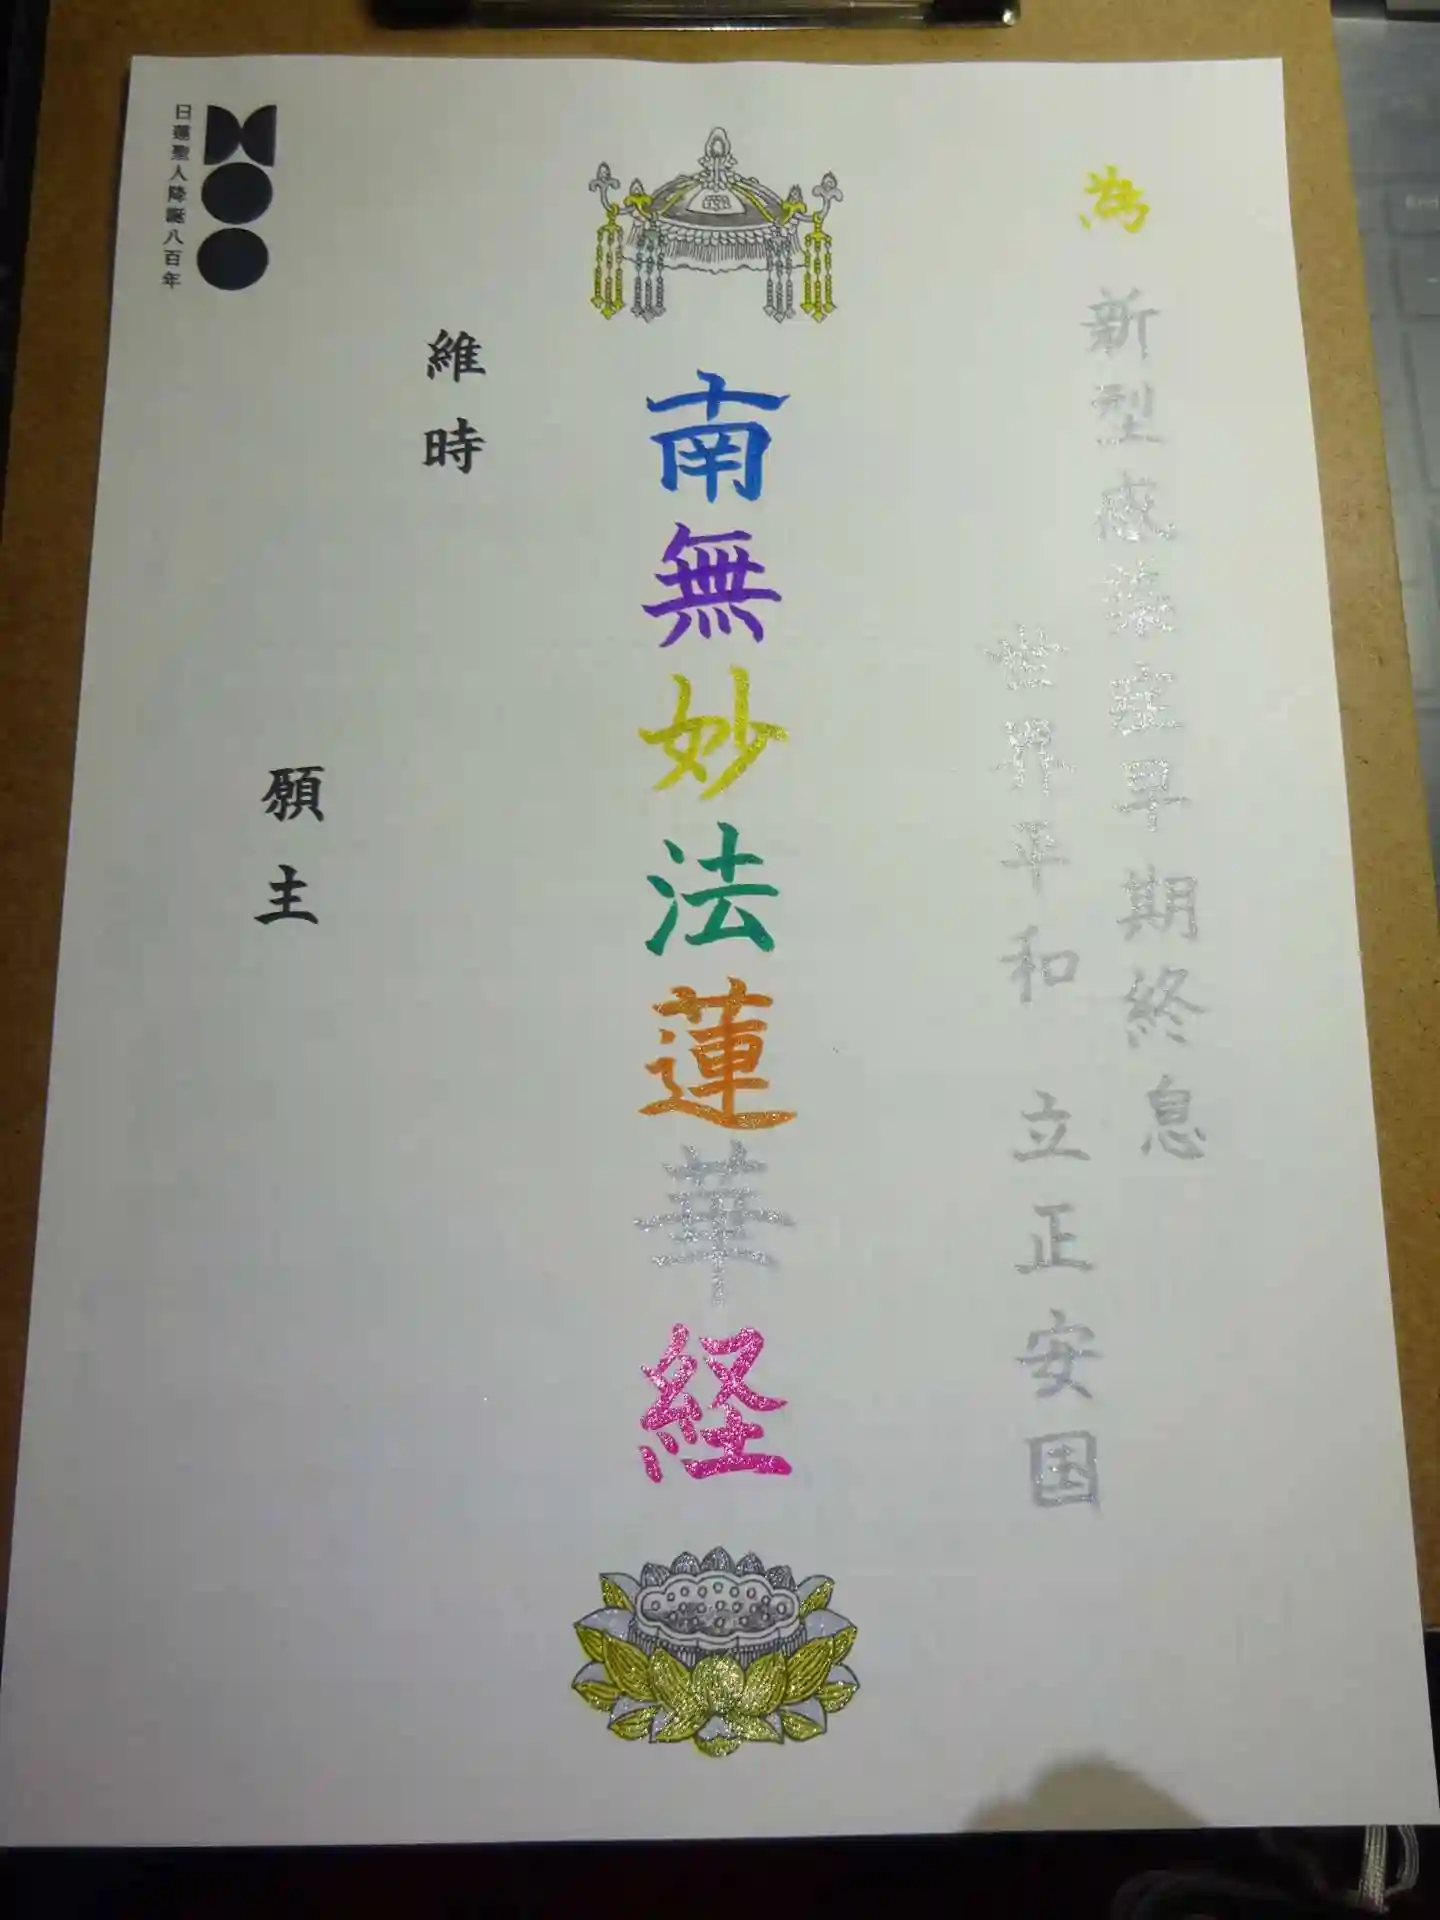 為 新型感染症早期終息
世界平和 立正安国
南無妙法蓮華経
維時
願主
日蓮聖人降誕八百年
End